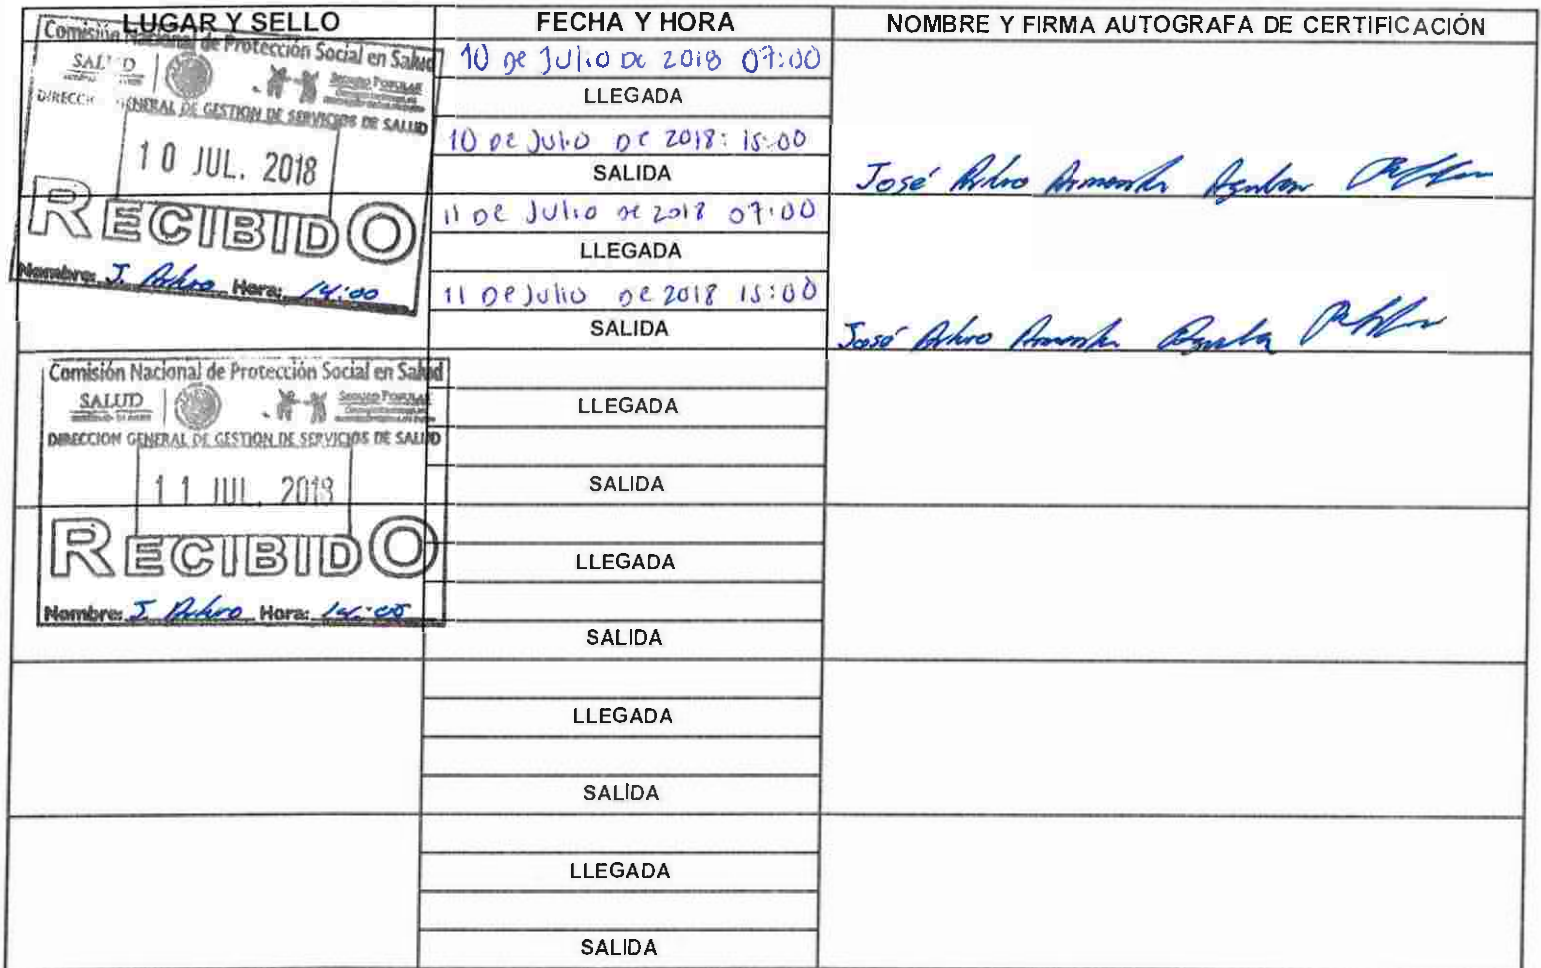 LUGAR Y SELLO
FECHA Y HORA
NOMBRE Y FIRMA AUTOGRAFA DE CERTIFICACIÓN
Comisión Nacional de Protección Social en Salud
SALUD
SEGURO POPULAR
DIRECCION GENERAL DE GESTION DE SERVICIOS DE SALUD
10 JUL. 2018
RECIBIDO
Nombre: J. Arturo Hora: 14:00
10 de Julio de 2018 07:00
LLEGADA
10 de Julio de 2018: 15:00
SALIDA
José Arturo
11 de Julio de 2018 07:00
LLEGADA
11 de Julio de 2018 15:00
SALIDA
José Arturo
Comisión Nacional de Protección Social en Salud
SALUD
SEGURO POPULAR
DIRECCION GENERAL DE GESTION DE SERVICIOS DE SALUD
11 JUL. 2018
RECIBIDO
Nombre: J. Arturo Hora: 14:00
LLEGADA
SALIDA
LLEGADA
SALIDA
LLEGADA
SALIDA
LLEGADA
SALIDA